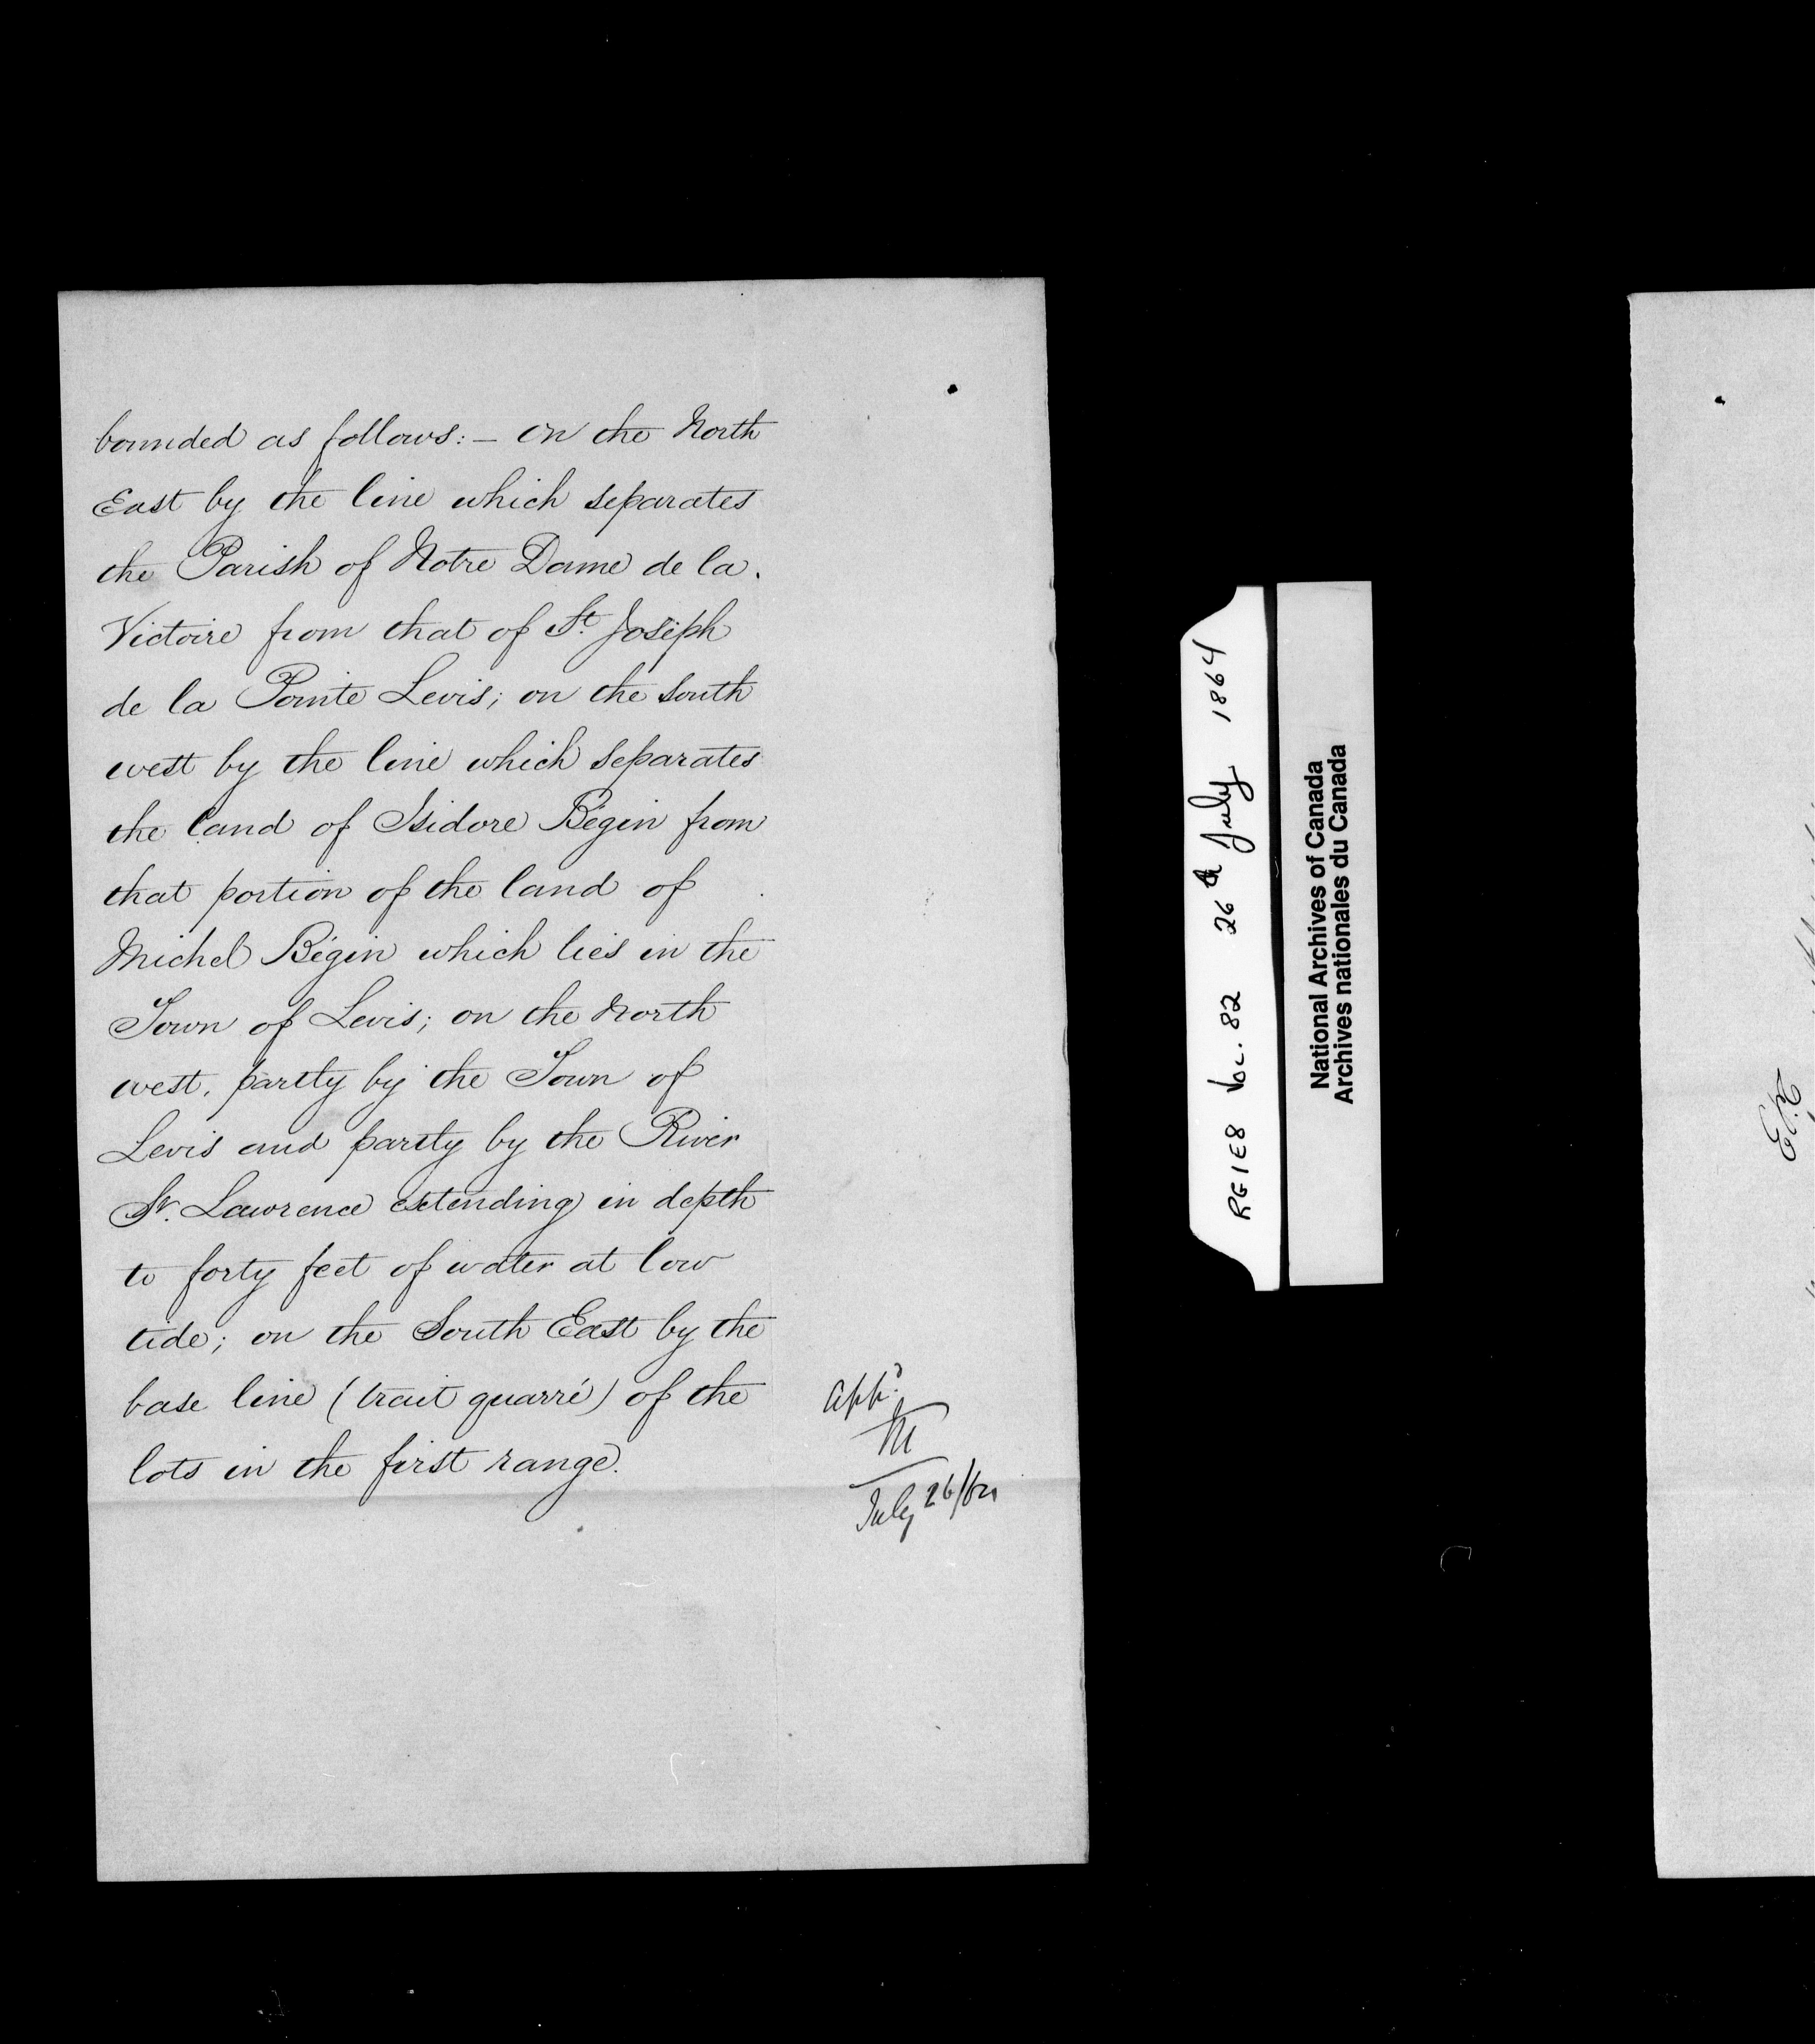 bounded as follows: — On the North
East by the line which separates
the Parish of Notre Dame de la
Victoire from that of St. Joseph
de la Pointe Levis; on the South
west by the line which separates
the land of Isidore Bégin from
that portion of the land of
Michel Bégin which lies in the
Town of Levis; on the North
west, partly by the Town of
Levis and partly by the River
St. Lawrence extending in depth
to forty feet of water at low
tide; on the South East by the
base line (trait quarré) of the
lots in the first range.
appd.
M
July 26/64
RG1E8 VOL. 82 26th July 1864
National Archives of Canada
Archives nationales du Canada